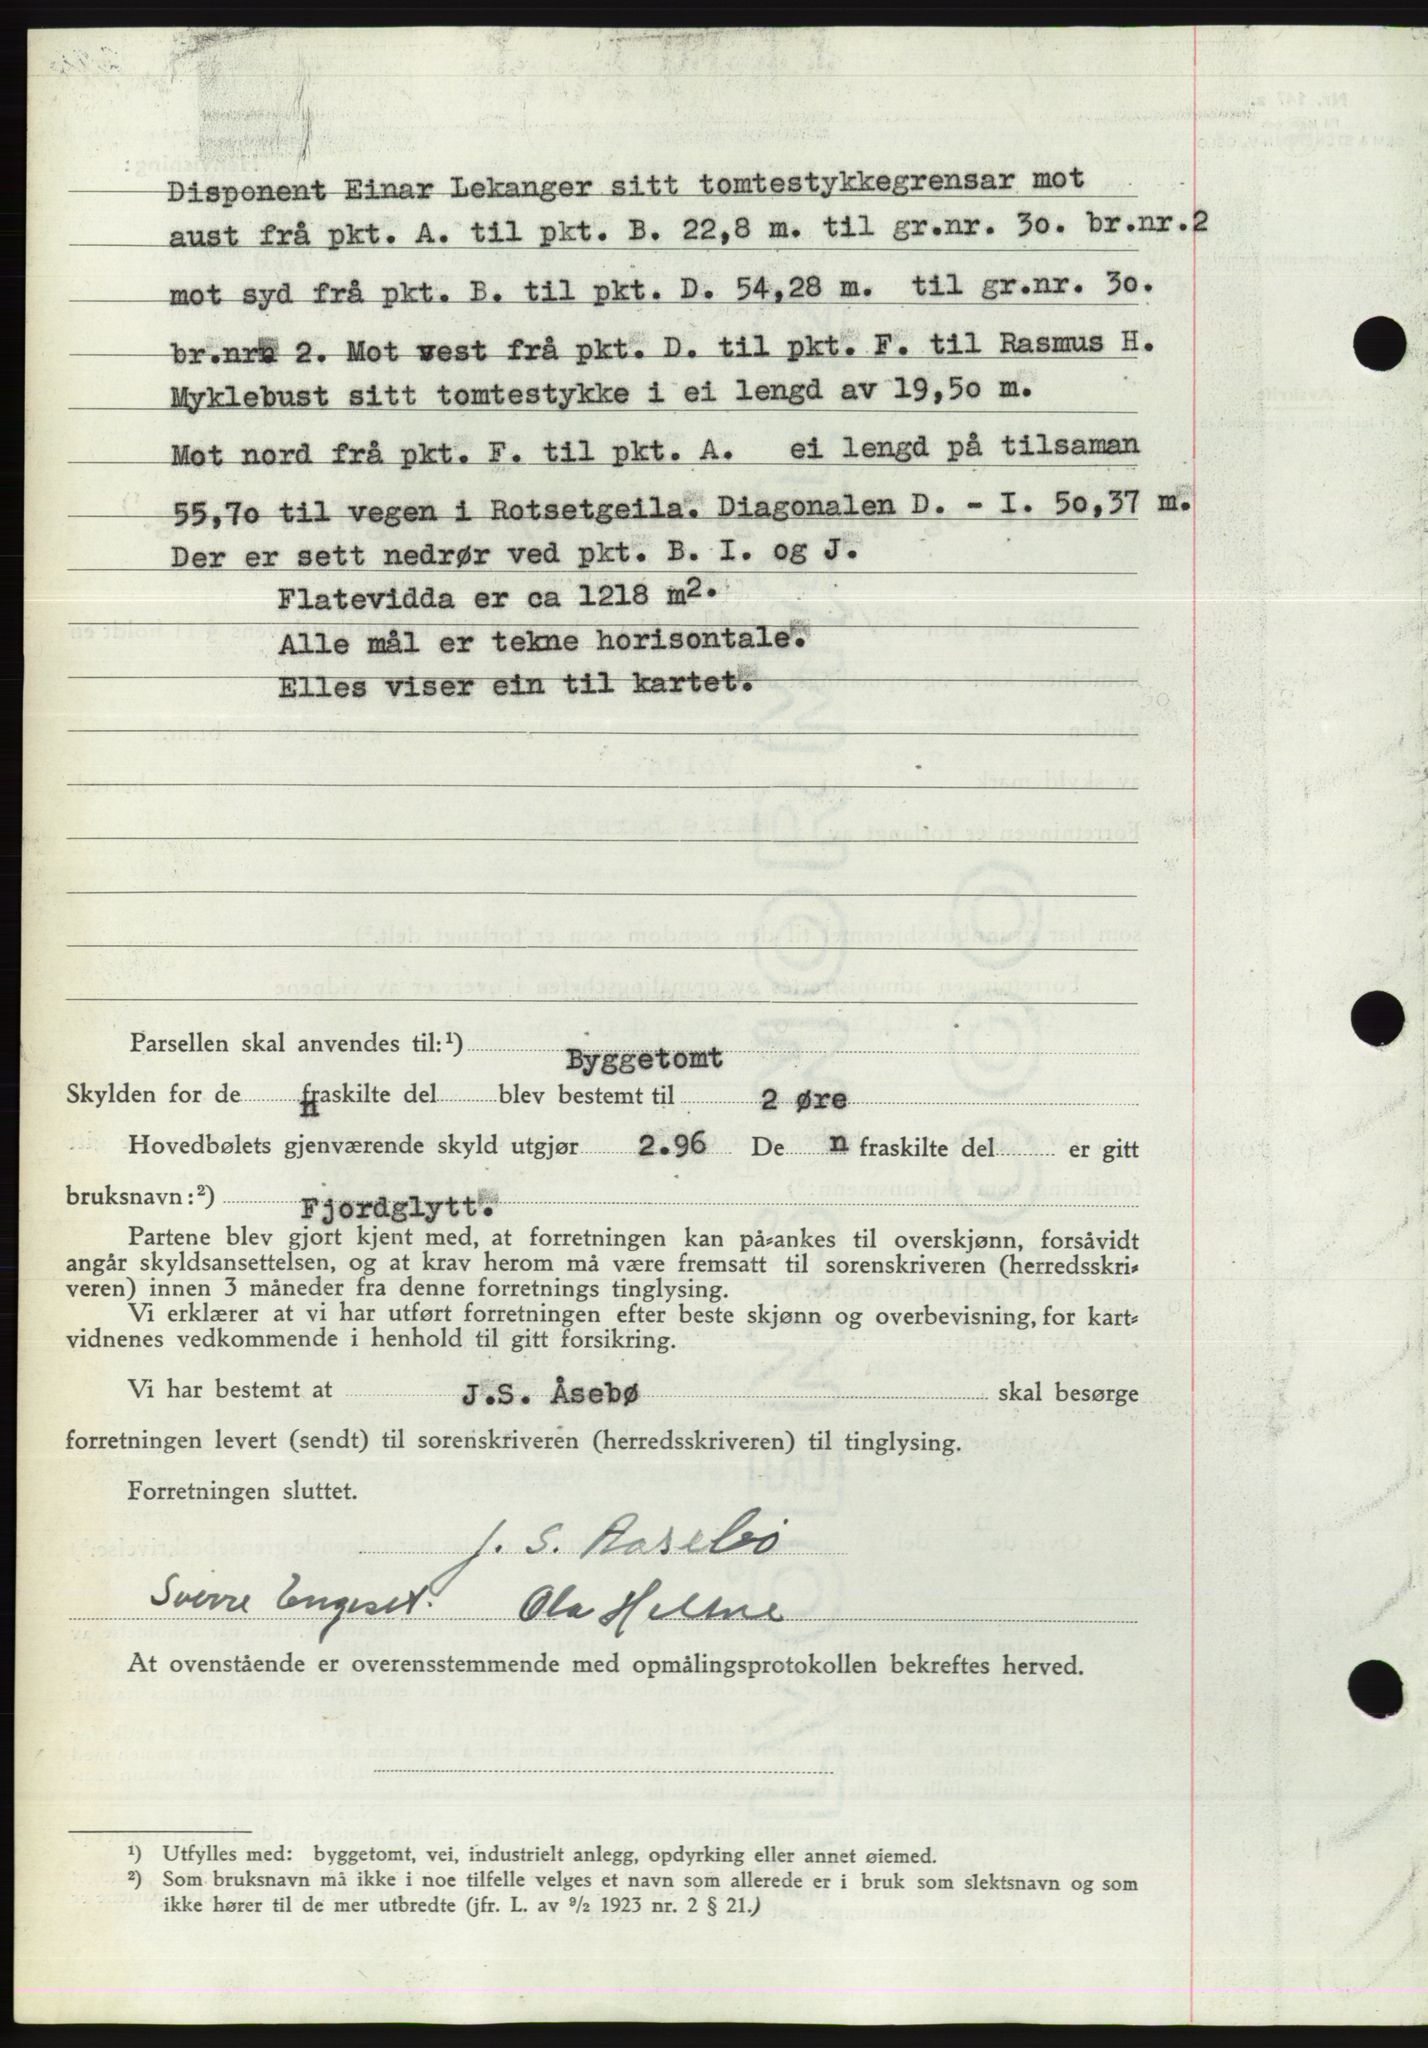 Disponent Einar Lekanger sitt tomtestykkegrensar mot
aust frå pkt. A. til pkt. B. 22,8 m. til gr.nr. 30. br.nr.2
mot syd frå pkt. B. til pkt. D. 54,28 m. til gr.nr. 30.
br.nr. 2. Mot vest frå pkt. D. til pkt. F. til Rasmus H.
Myklebust sitt tomtestykke i ei lengd av 19,50 m.
Mot nord frå pkt. F. til pkt. A. ei lengd på tilsaman
55,70 til vegen i Rotsetgeila. Diagonalen D. - I. 50,37 m.
Der er sett nedrør ved pkt. B. I. og J.
Flatevidda er ca 1218 m2.
Alle mål er tekne horisontale.
Elles viser ein til kartet.
Parsellen skal anvendes til:¹) Byggetomt
Skylden for de n fraskilte del blev bestemt til 2 øre
Hovedbølets gjenværende skyld utgjør 2.96 De n fraskilte del er gitt
bruksnavn:²) Fjordglytt.
Partene blev gjort kjent med, at forretningen kan på-ankes til overskjønn, forsåvidt
angår skyldsansettelsen, og at krav herom må være fremsatt til sorenskriveren (herredsskri-
veren) innen 3 måneder fra denne forretnings tinglysing.
Vi erklærer at vi har utført forretningen efter beste skjønn og overbevisning, for kart-
vidnenes vedkommende i henhold til gitt forsikring.
Vi har bestemt at J.S. Åsebø skal besørge
forretningen levert (sendt) til sorenskriveren (herredsskriveren) til tinglysing.
Forretningen sluttet.
J. S. Aasebö
Sverre Engeset. Ola Helsne
At ovenstående er overensstemmende med opmålingsprotokollen bekreftes herved.
¹) Utfylles med: byggetomt, vei, industrielt anlegg, opdyrking eller annet øiemed.
²) Som bruksnavn må ikke i noe tilfelle velges et navn som allerede er i bruk som slektsnavn og som
ikke hører til de mer utbredte (jfr. L. av 9/2 1923 nr. 2 § 21.)